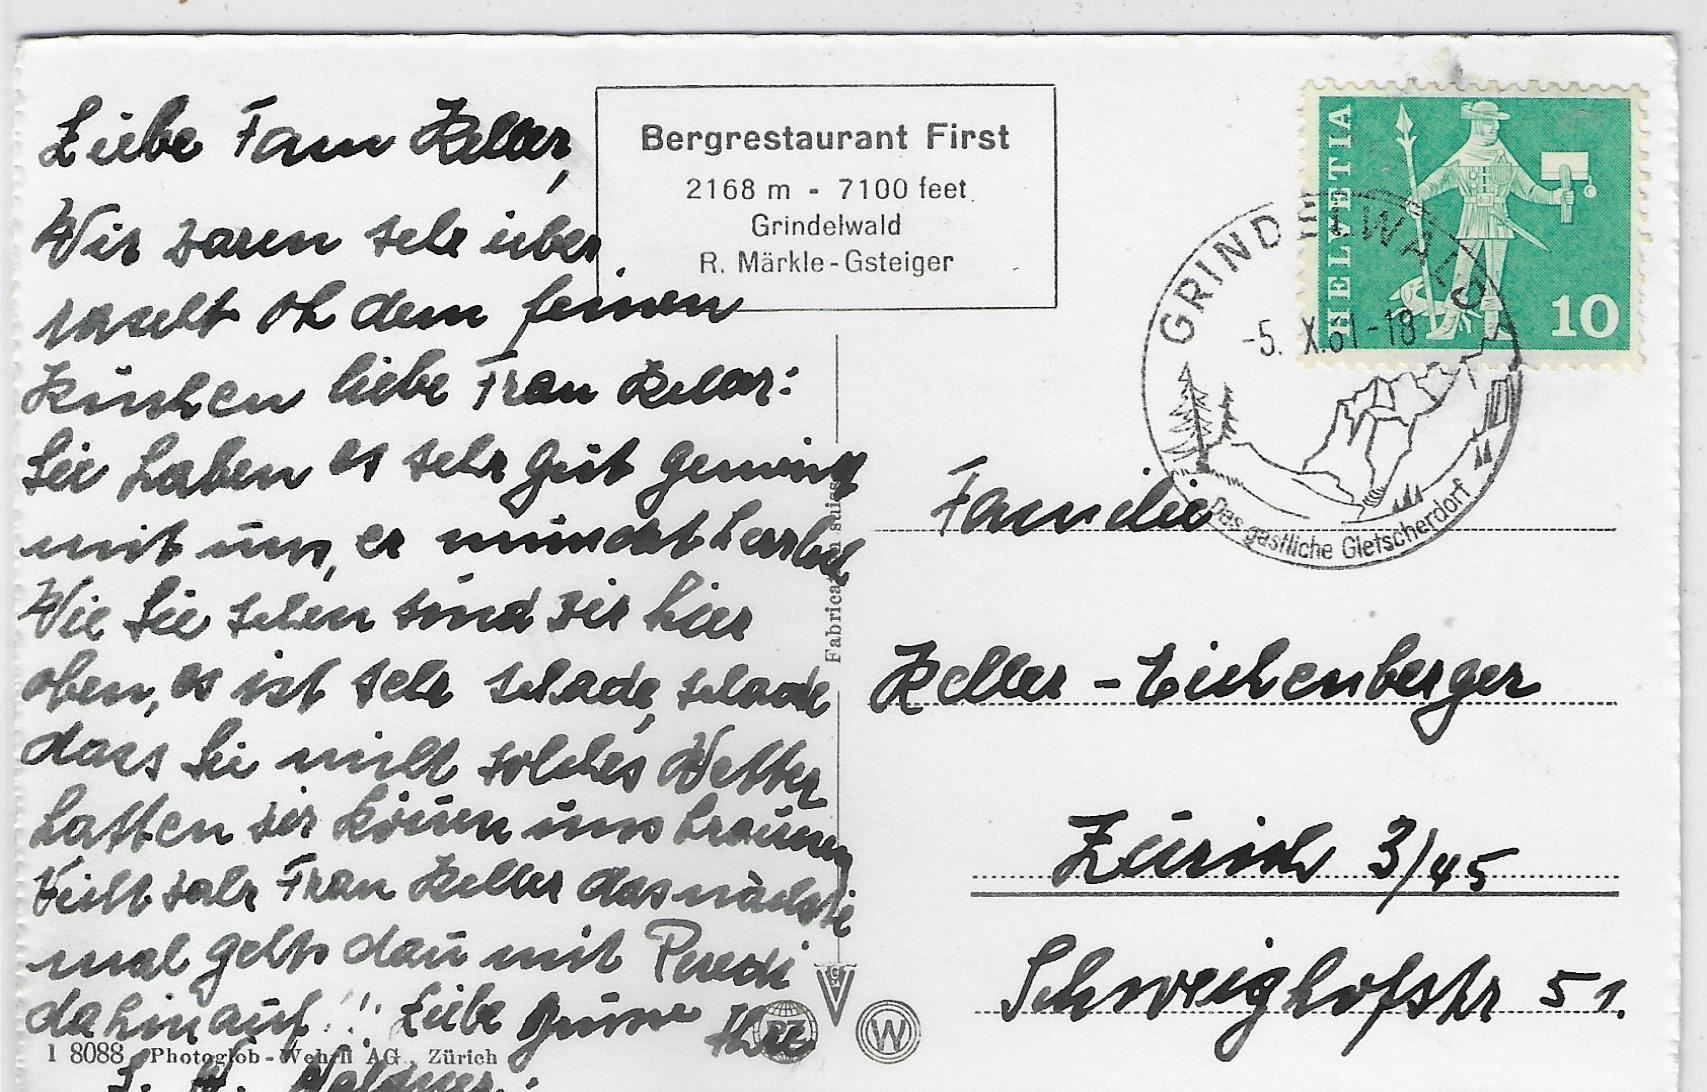 Liebe Fam Keller,
Wir waren sehr über
rascht ob dem feinen
Kuchen liebe Frau Keller:
Sie haben es sehr gut gemeint
mit uns, er mundet herrlich
Wie Sie sehen sind wir hier
oben, es ist sehr schade, schade
dass Sie nicht solches Wetter
hatten wir können uns bräunen
Nicht wahr Frau Keller das nächste
mal gehts dan mit Puredi
dahinauf!! Liebe Grüsse Ihre
Bergrestaurant First
2168 m - 7100 feet
Grindelwald
R. Märkle-Gsteiger
HELVETIA
10
GRINDELWALD
-5. X.61-18
Das gastliche Gletscherdorf
Familie
Keller-Eichenberger
Zürich 3/45
Schweighofstr 51.
suisse
1 8088 Photoglob-Wehrli AG., Zürich
W